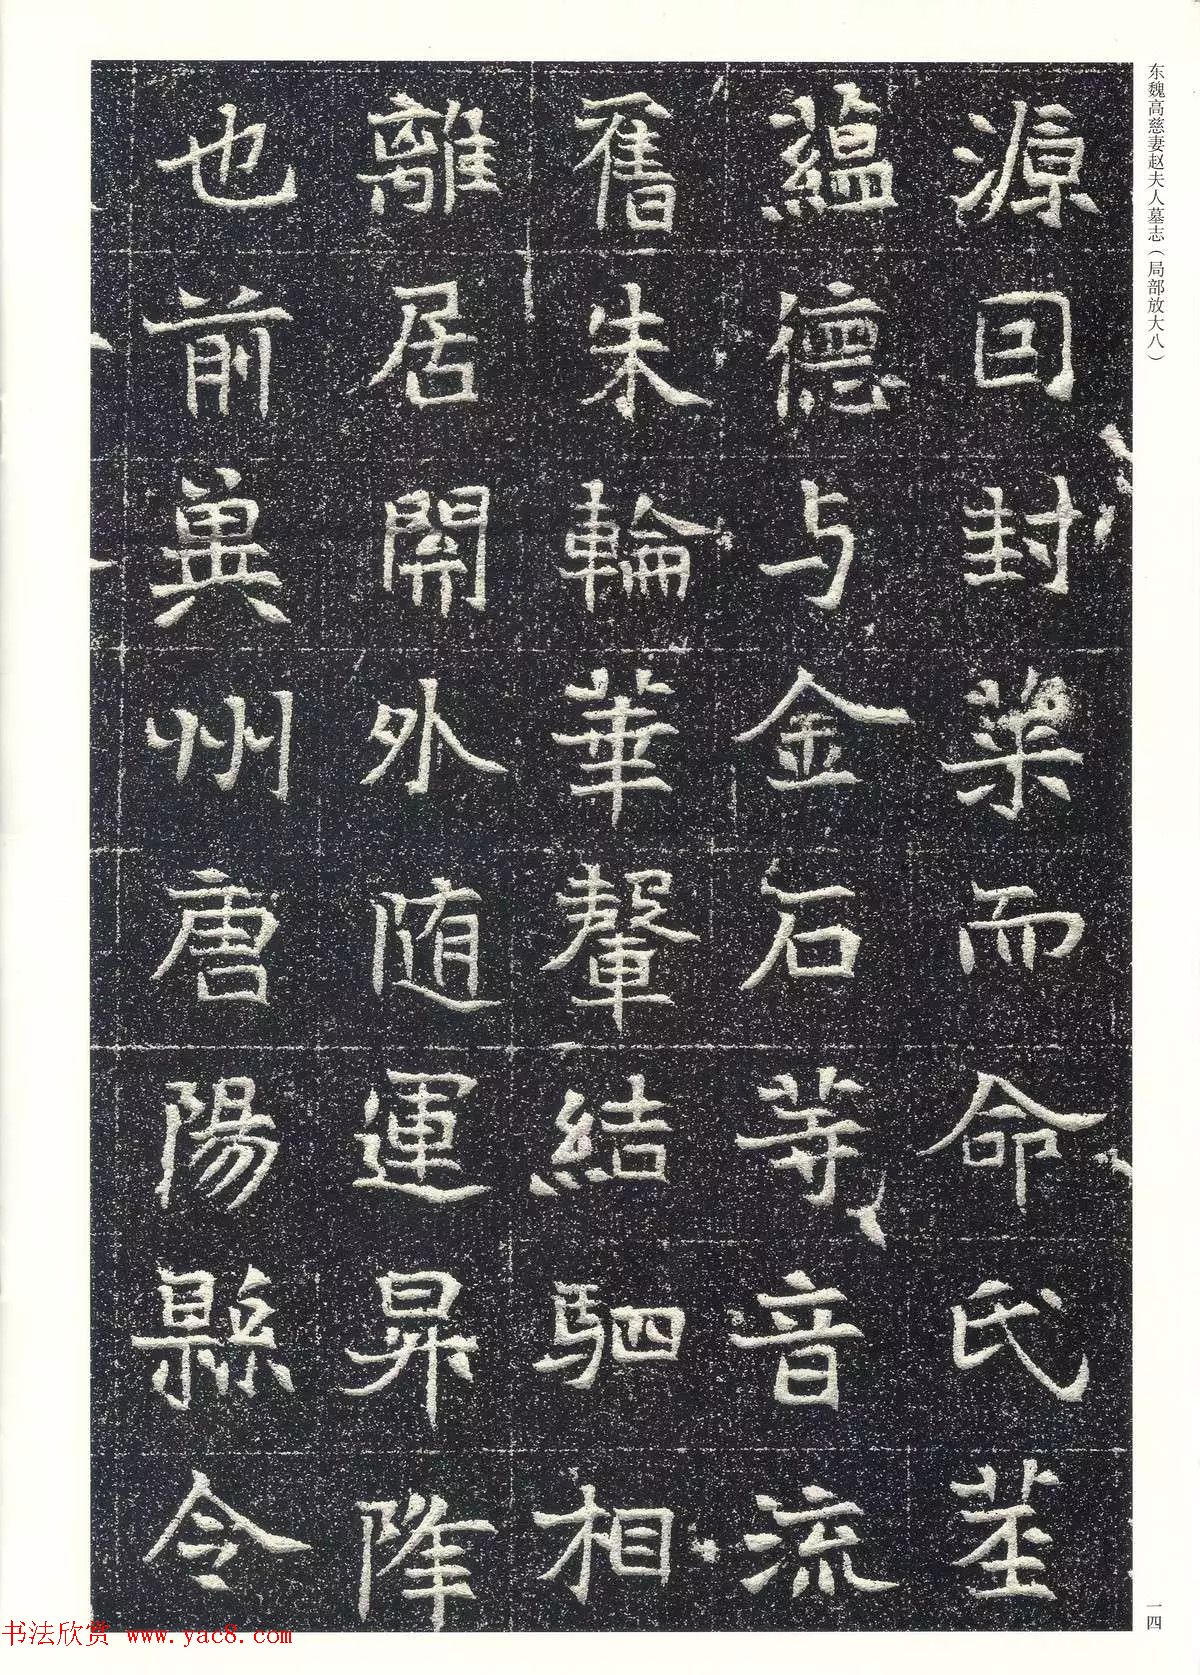 东魏高慈妻赵夫人墓志（局部放大八）
源囙封菜而命氏茎
蘊德与金石等音流
舊朱輪華轂結駟相
離居開外随運昇降
也前兾州唐陽縣令
一四
书法欣赏 www.yac8.com